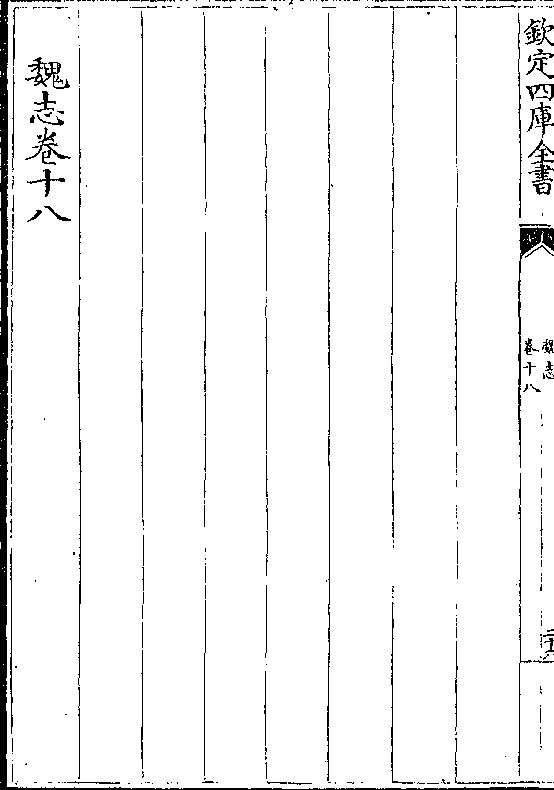 欽定四庫全書
魏志
卷十八
魏志卷十八